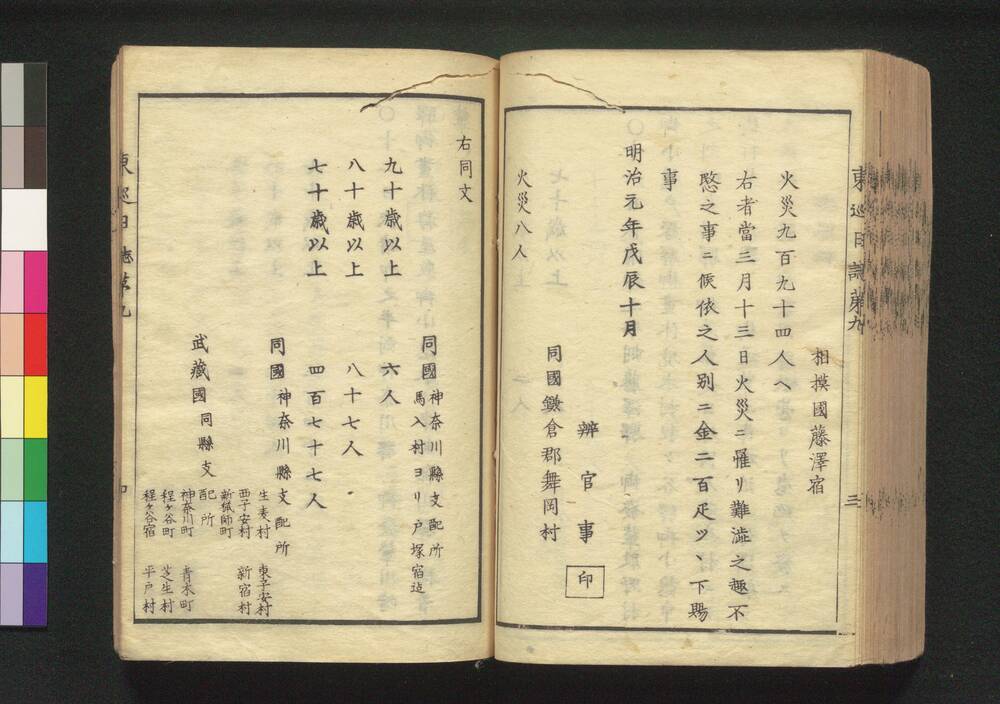 東巡日誌第九
三
相摸國藤澤宿
火災九百九十四人ヘ
右者當三月十三日火災ニ罹リ難澁之趣不
愍之事ニ候依之人別ニ金二百疋ツヽ下賜
事
明治元年戊辰十月
辨官事 印
同國鎌倉郡舞岡村
火災八人
右同文
同國神奈川縣支配所
馬入村ヨリ戸塚宿迄
九十歳以上 六人
八十歳以上 八十七人
七十歳以上 四百七十七人
同國神奈川縣支配所
武藏國同縣支配所
生麦村 東子安村
西子安村 新宿村
新漁師町
神奈川町 青木町
程ヶ谷町 芝生村
程ヶ谷宿 平戸村
東巡日誌第九